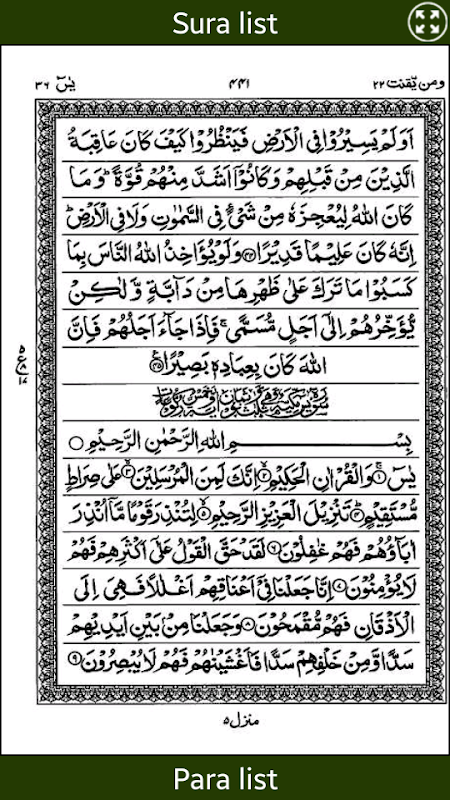 Sura list
ومن يقنت ٢٢ ٤٤١ يٰسٓ ٣٦
اَوَلَمْ يَسِيْرُوْا فِي الْاَرْضِ فَيَنْظُرُوْا كَيْفَ كَانَ عَاقِبَةُ
الَّذِيْنَ مِنْ قَبْلِهِمْ وَكَانُوْۤا اَشَدَّ مِنْهُمْ قُوَّةً ؕ وَمَا
كَانَ اللّٰهُ لِيُعْجِزَهٗ مِنْ شَيْءٍ فِي السَّمٰوٰتِ وَلَا فِي الْاَرْضِ ؕ
اِنَّهٗ كَانَ عَلِيْمًا قَدِيْرًا ﴿٤٤﴾ وَلَوْ يُؤَاخِذُ اللّٰهُ النَّاسَ بِمَا
كَسَبُوْا مَا تَرَكَ عَلٰى ظَهْرِهَا مِنْ دَآبَّةٍ وَّلٰكِنْ
يُّؤَخِّرُهُمْ اِلٰۤى اَجَلٍ مُّسَمًّى ۚ فَاِذَا جَآءَ اَجَلُهُمْ فَاِنَّ
اللّٰهَ كَانَ بِعِبَادِهٖ بَصِيْرًا ﴿٤٥﴾
بِسْمِ اللّٰهِ الرَّحْمٰنِ الرَّحِيْمِ
يٰسٓ ﴿١﴾ وَالْقُرْاٰنِ الْحَكِيْمِ ﴿٢﴾ اِنَّكَ لَمِنَ الْمُرْسَلِيْنَ ﴿٣﴾ عَلٰى صِرَاطٍ
مُّسْتَقِيْمٍ ﴿٤﴾ تَنْزِيْلَ الْعَزِيْزِ الرَّحِيْمِ ﴿٥﴾ لِتُنْذِرَ قَوْمًا مَّاۤ اُنْذِرَ
اٰبَآؤُهُمْ فَهُمْ غٰفِلُوْنَ ﴿٦﴾ لَقَدْ حَقَّ الْقَوْلُ عَلٰۤى اَكْثَرِهِمْ فَهُمْ
لَا يُؤْمِنُوْنَ ﴿٧﴾ اِنَّا جَعَلْنَا فِيْۤ اَعْنَاقِهِمْ اَغْلٰلًا فَهِيَ اِلَى
الْاَذْقَانِ فَهُمْ مُّقْمَحُوْنَ ﴿٨﴾ وَجَعَلْنَا مِنْ بَيْنِ اَيْدِيْهِمْ
سَدًّا وَّمِنْ خَلْفِهِمْ سَدًّا فَاَغْشَيْنٰهُمْ فَهُمْ لَا يُبْصِرُوْنَ ﴿٩﴾
منزل ٥
Para list